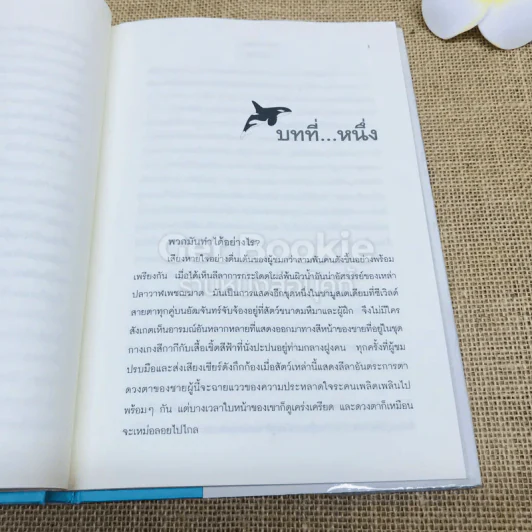 1
บทที่...หนึ่ง
พวกมันทำได้อย่างไร?
เสียงหายใจอย่างตื่นเต้นของผู้ชมกว่าสามพันคนดังขึ้นอย่างพร้อม
เพรียงกัน เมื่อได้เห็นลีลาการกระโดดโผล่พ้นผิวน้ำอันน่าอัศจรรย์ของเหล่า
ปลาวาฬเพชฌฆาต มันเป็นการแสดงอีกชุดหนึ่งในชามูสเตเดียมที่ซีเวิลด์
สายตาทุกคู่บนอัฒจันทร์จับจ้องอยู่ที่สัตว์ขนาดมหึมาและผู้ฝึก จึงไม่มีใคร
สังเกตเห็นอารมณ์อันหลากหลายที่แสดงออกมาทางสีหน้าของชายที่อยู่ในชุด
กางเกงสีกากีกับเสื้อเชิ้ตสีฟ้าที่นั่งปะปนอยู่ท่ามกลางฝูงคน ทุกครั้งที่ผู้ชม
ปรบมือและส่งเสียงเชียร์ดังกึกก้องเมื่อสัตว์เหล่านี้แสดงลีลาอันตระการตา
ดวงตาของชายผู้นี้จะฉายแววของความประหลาดใจระคนเพลิดเพลินไป
พร้อมๆ กัน แต่บางเวลาใบหน้าของเขาก็ดูเคร่งเครียด และดวงตาก็เหมือน
จะเหม่อลอยไปไกล
Get Bookie